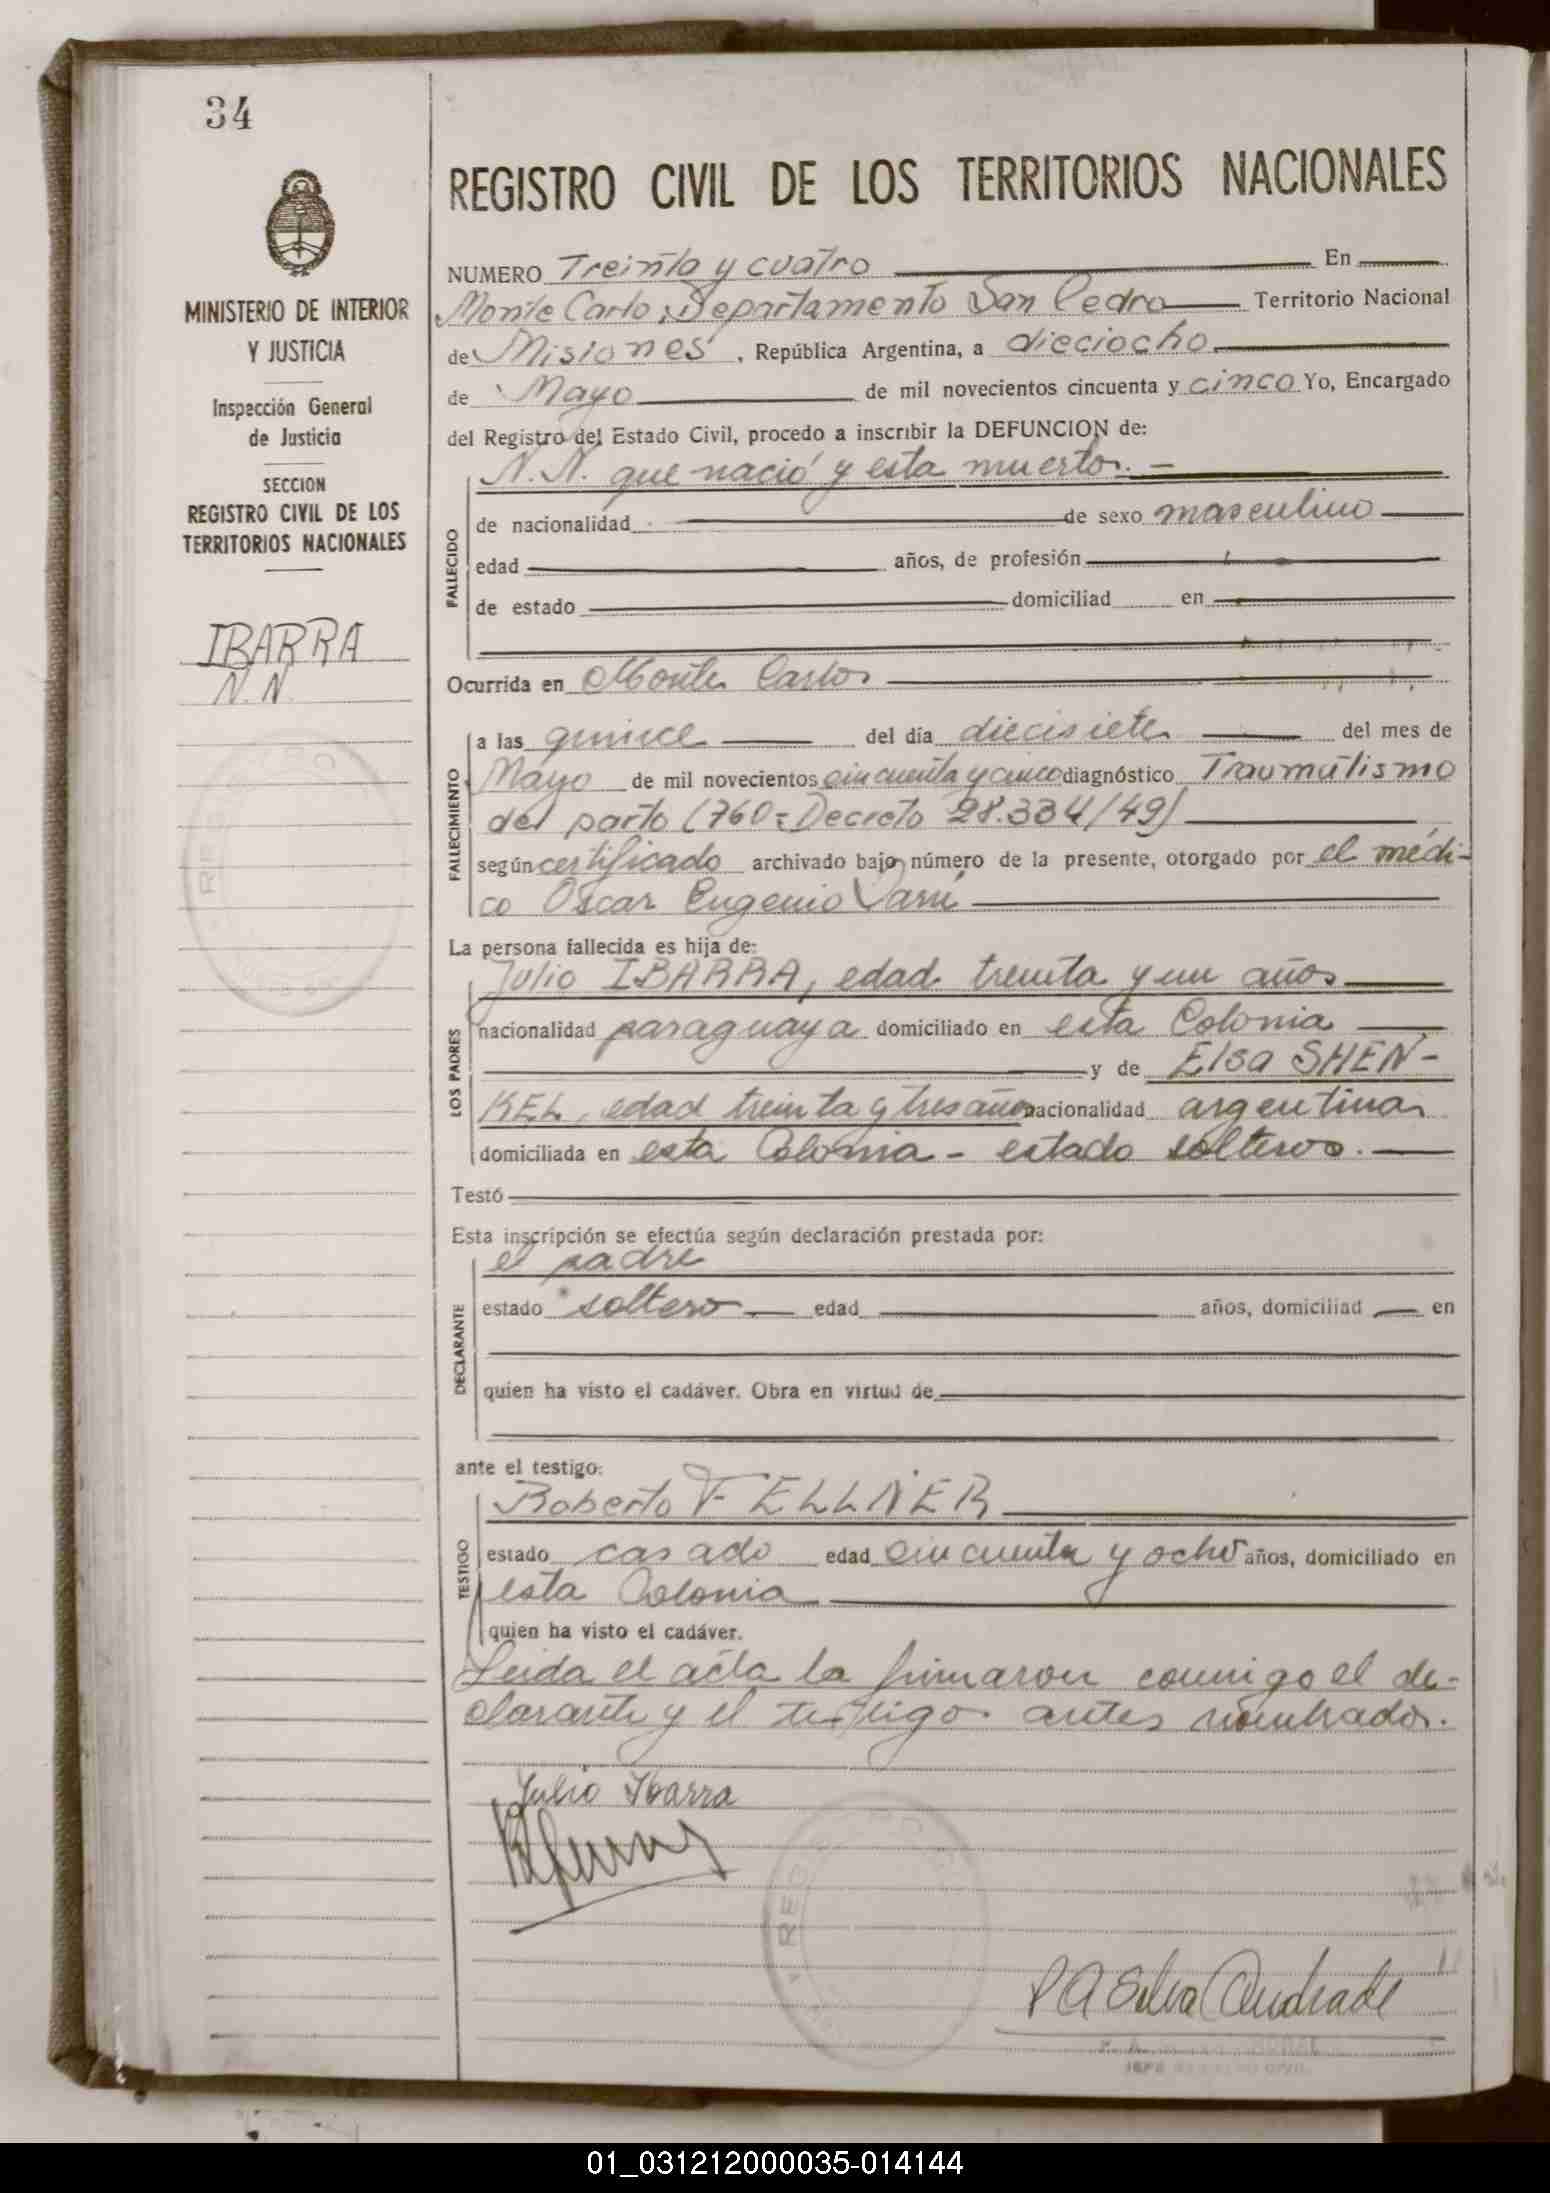 34
MINISTERIO DE INTERIOR
Y JUSTICIA
Inspección General
de Justicia
SECCION
REGISTRO CIVIL DE LOS
TERRITORIOS NACIONALES
IBARRA
N.N.
REGISTRO CIVIL DE LOS TERRITORIOS NACIONALES
NUMERO Treinta y cuatro En
Monte Carlo, Departamento San Pedro Territorio Nacional
de Misiones, República Argentina, a dieciocho
de Mayo de mil novecientos cincuenta y cinco Yo, Encargado
del Registro del Estado Civil, procedo a inscribir la DEFUNCION de:
N.N. que nació y esta muerto.
FALLECIDO
de nacionalidad de sexo masculino
edad años, de profesión
de estado domiciliad en
Ocurrida en Monte Carlo
FALLECIMIENTO
a las quince del día diecisiete del mes de
Mayo de mil novecientos cincuenta y cinco diagnóstico Traumatismo
del parto (760=Decreto 28.334/49)
según certificado archivado bajo número de la presente, otorgado por el médi-
co Oscar Eugenio
La persona fallecida es hija de:
LOS PADRES
Julio IBARRA, edad treinta y un años
nacionalidad paraguaya domiciliado en esta Colonia
y de Elsa SHEN-
KEL, edad treinta y tres años nacionalidad argentina
domiciliada en esta Colonia - estado solteros.
Testó
Esta inscripción se efectúa según declaración prestada por:
DECLARANTE
el padre
estado soltero edad años, domiciliad en
quien ha visto el cadáver. Obra en virtud de
ante el testigo:
TESTIGO
Roberto FELLNER
estado casado edad cincuenta y ocho años, domiciliado en
esta Colonia
quien ha visto el cadáver.
Leida el acta la firmaron conmigo el de-
clarante y el testigo antes nombrado.
Julio Ibarra
REG
P A Silva Andrade
01_031212000035-014144